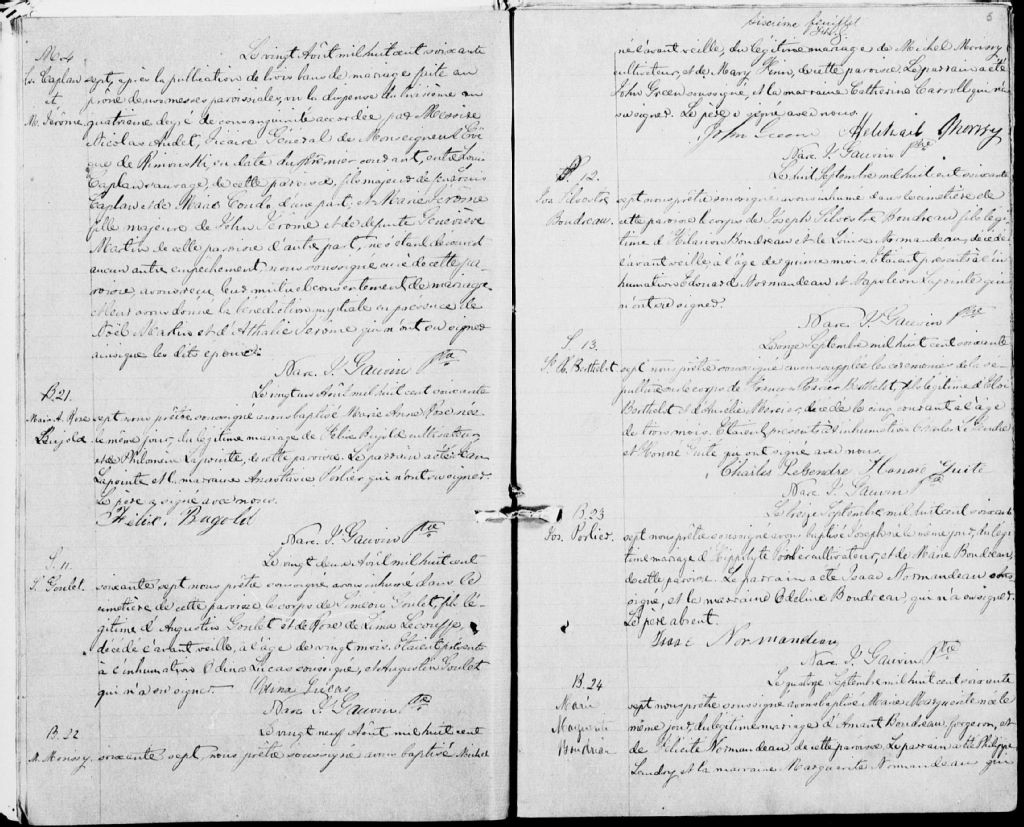 M. 4
Ls. Caplan
et
M. Jérôme
Le vingt Août mil huit cent soixante
sept, après la publication de trois bans de mariage faite au
prône de nos messes paroissiales, vu la dispense du troisième au
quatrième degré de consanguinité accordée par Messire
Nicolas Audet, Vicaire Général de Monseigneur l'Évê
que de Rimouski, en date du premier courant, entre Louis
Caplan sauvage, de cette paroisse, fils majeur de Louis
Caplan et de Marie Condo d'une part; et Marie Jérôme
fille majeure de John Jérôme et de défunte Geneviève
Martin de cette paroisse d'autre part, ne s'étant découvert
aucun autre empêchement, nous soussigné curé de cette pa-
roisse, avons reçu leur mutuel consentement de mariage
et leur avons donné la bénédiction nuptiale en présence de
Noël Martin et d'Athalie Jérôme qui n'ont su signer
ainsi que les dits époux.
Narc. J. Gauvin Ptre
B. 21.
Marie A. Rose
Bujold
Le vingt un Août mil huit cent soixante
sept nous prêtre soussigné avons baptisé Marie Anne Rose née
le même jour, du légitime mariage de Félix Bujold cultivateur
et de Philomène Lapointe, de cette paroisse. Le parrain a été Jean
Lapointe et la marraine Anastasie Porlier qui n'ont su signer.
Le père a signé avec nous.
Félix. Bugold
Narc. J. Gauvin Ptre
S. 11.
S. Goulet.
Le vingt deux Août mil huit cent
soixante sept nous prêtre soussigné avons inhumé dans le
cimetière de cette paroisse le corps de Siméon Goulet, fils lé-
gitime d'Augustin Goulet et de Rose de Lima Lecouffe,
décédé l'avant veille, à l'âge de vingt mois. Étaient présents
à l'inhumation Odina Lucas soussigné, et Augustin Goulet
qui n'a su signer. Odina Lucas
Narc. J. Gauvin Ptre
B. 22
M. Morissy.
Le vingt neuf Août mil huit cent
soixante sept, nous prêtre soussigné avons baptisé Michel
sixième feuillet
6
né l'avant veille, du légitime mariage de Michel Morissy
cultivateur, et de Mary, de cette paroisse. Le parrain a été
John Green soussigné, et la marraine Catherine Carroll qui n'a
su signer. Le père a signé avec nous.
John Green Morissy
Narc. J. Gauvin Ptre
S. 12.
Jos. Silvestre
Boudreau.
Le huit Septembre mil huit cent soixante
sept nous prêtre soussigné avons inhumé dans le cimetière de
cette paroisse le corps de Joseph Silvestre Boudreau fils légi-
time d'Hilarion Boudreau et de Louise Normandeau, décédé
l'avant veille, à l'âge de quinze mois. Étaient présents à l'in
humation Édouard Normandeau et Napoléon Lapointe qui
n'ont su signer.
Narc. J. Gauvin Ptre
S. 13.
Berthelot
Le onze Septembre mil huit cent soixante
sept nous prêtre soussigné avons suppléé les cérémonies de la sé-
pulture sur le corps de François Xavier Berthelot, fils légitime d'Eloi
Berthelot et d'Aurélie Mercier, décédé le cinq courant à l'âge
de trois mois. Étaient présents à l'inhumation Charles LeGendre
et Honoré Guité qui ont signé avec nous.
Charles LeGendre Honoré Guité
Narc. J. Gauvin Ptre
B. 23
Jos. Porlier.
Le treize Septembre mil huit cent soixante
sept nous prêtre soussigné avons baptisé Joseph né le même jour, du légi
time mariage d'Hippolyte Porlier cultivateur, et de Marie Boudreau,
de cette paroisse. Le parrain a été Isaac Normandeau sous
signé, et la marraine Adeline Boudreau, qui n'a su signer.
Le père absent.
Isaac Normandeau
Narc. J. Gauvin Ptre
B. 24
Marie
Marguerite
Boudreau
Le quatorze Septembre mil huit cent soixante
sept nous prêtre soussigné avons baptisé Marie Marguerite née le
même jour, du légitime mariage d'Amant Boudreau, forgeron, et
de Félicité Normandeau de cette paroisse. Le parrain a été Philippe
Landry et la marraine Marguerite Normandeau qui